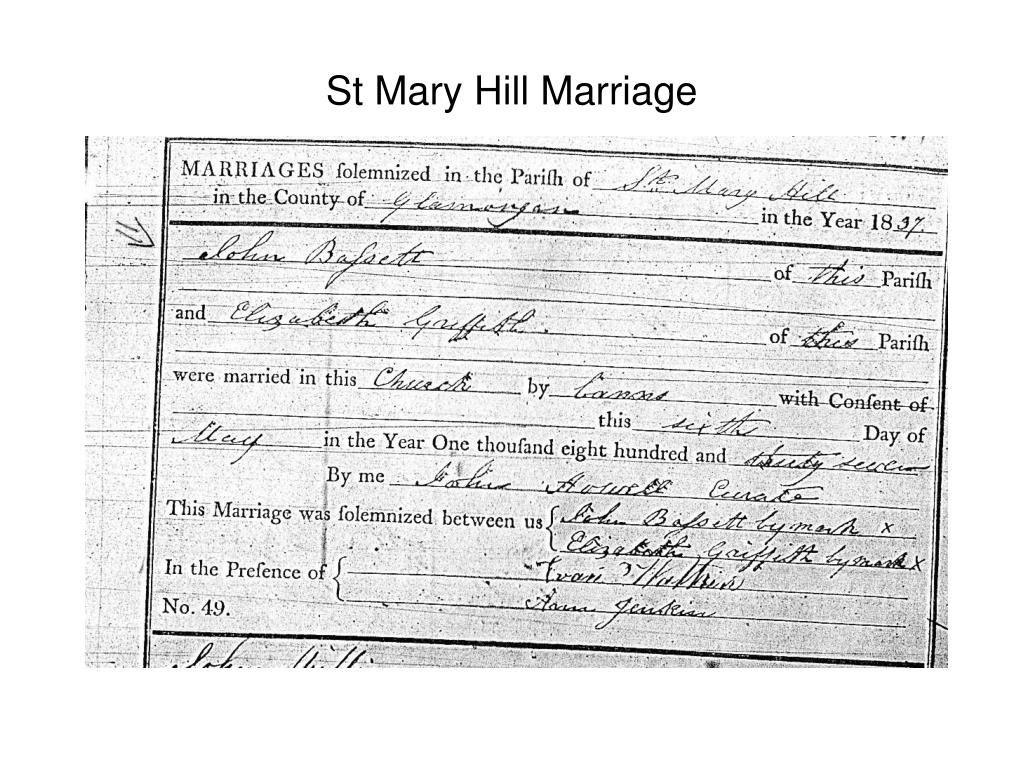 St Mary Hill Marriage
MARRIAGES ſolemnized in the Pariſh of St. Mary Hill
in the County of Glamorgan in the Year 1837
John Baſsett of this Pariſh
and Elizabeth Griffith. of this Pariſh
were married in this Church by Banns with Conſent of
this sixth Day of
May in the Year One thouſand eight hundred and thirty seven
By me John Howell Curate
This Marriage was ſolemnized between us { John Baſsett by mark x
Elizabeth Griffith by mark x
In the Preſence of { Evan Watkin
Ann Jenkin
No. 49.
John